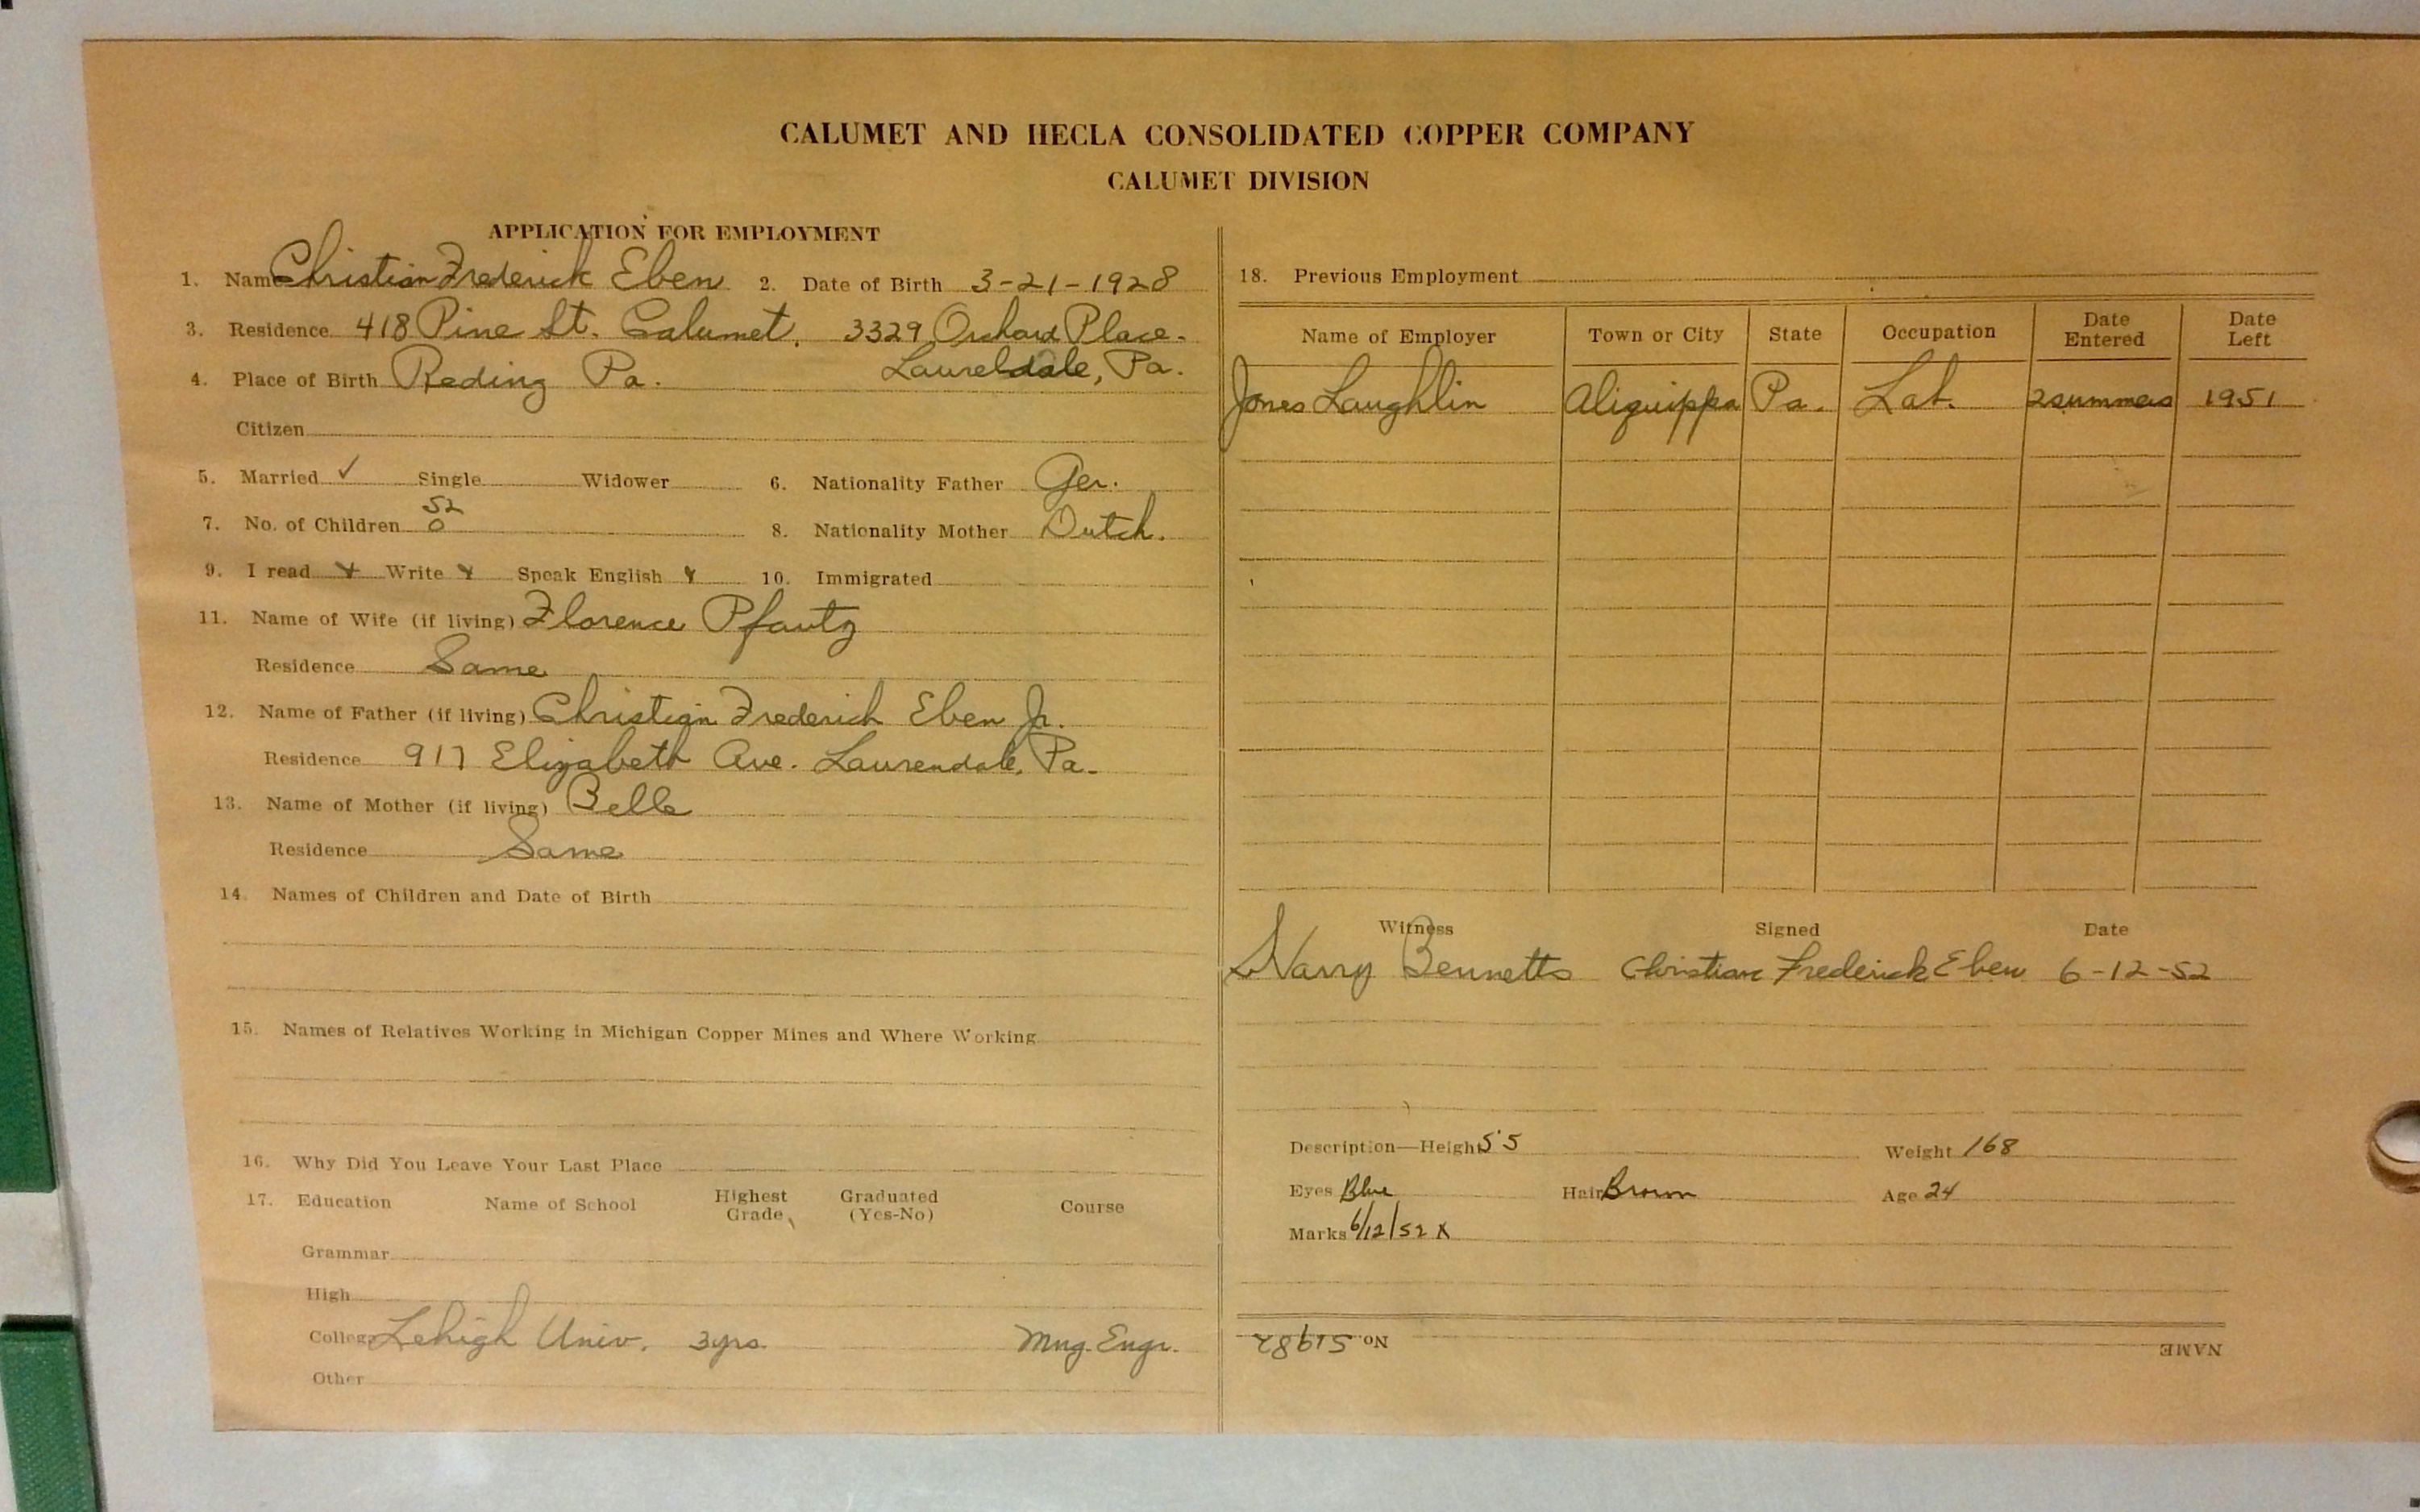 CALUMET AND HECLA CONSOLIDATED COPPER COMPANY
CALUMET DIVISION
APPLICATION FOR EMPLOYMENT
1. Name Christian Frederick Eben 2. Date of Birth 3-21-1928
3. Residence 418 Pine St. Calumet, 3329 Orchard Place.
Laureldale, Pa.
4. Place of Birth Reding Pa.
Citizen
5. Married ✓ Single Widower 6. Nationality Father Ger.
52
7. No. of Children 0 8. Nationality Mother Dutch.
9. I read Write Speak English 10. Immigrated
11. Name of Wife (if living) Florence Pfautz
Residence Same
12. Name of Father (if living) Christian Frederich Eben Jr.
Residence 917 Elizabeth Ave. Laurendale, Pa.
13. Name of Mother (if living) Belle
Residence Same
14. Names of Children and Date of Birth
15. Names of Relatives Working in Michigan Copper Mines and Where Working
16. Why Did You Leave Your Last Place
17. Education Name of School Highest Grade Graduated (Yes-No) Course
Grammar
High
College Lehigh Univ. 3yrs. Mng. Engr.
Other
18. Previous Employment
Name of Employer Town or City State Occupation Date Entered Date Left
Jones Laughlin Aliquippa Pa. Lab. 2 summers 1951
Witness Signed Date
Harry Bennetts Christian Frederick Eben 6-12-52
Description—Height 5'5 Weight 168
Eyes Blue Hair Brown Age 24
Marks 6/12/52 X
NAME No 51982